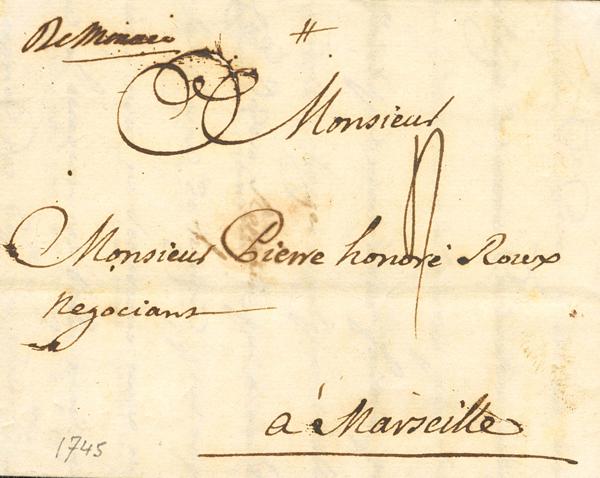 De Monaco
Monsieur
Monsieur Pierre honoré Roux
negociant
a' Marseille
1745